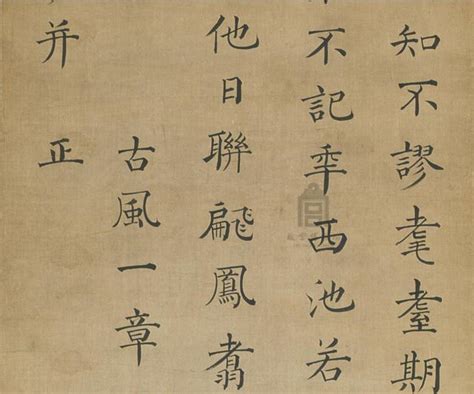 知不謬耄耋期
不記秊西池若
他日聯翩鳳翥
古風一章
并正